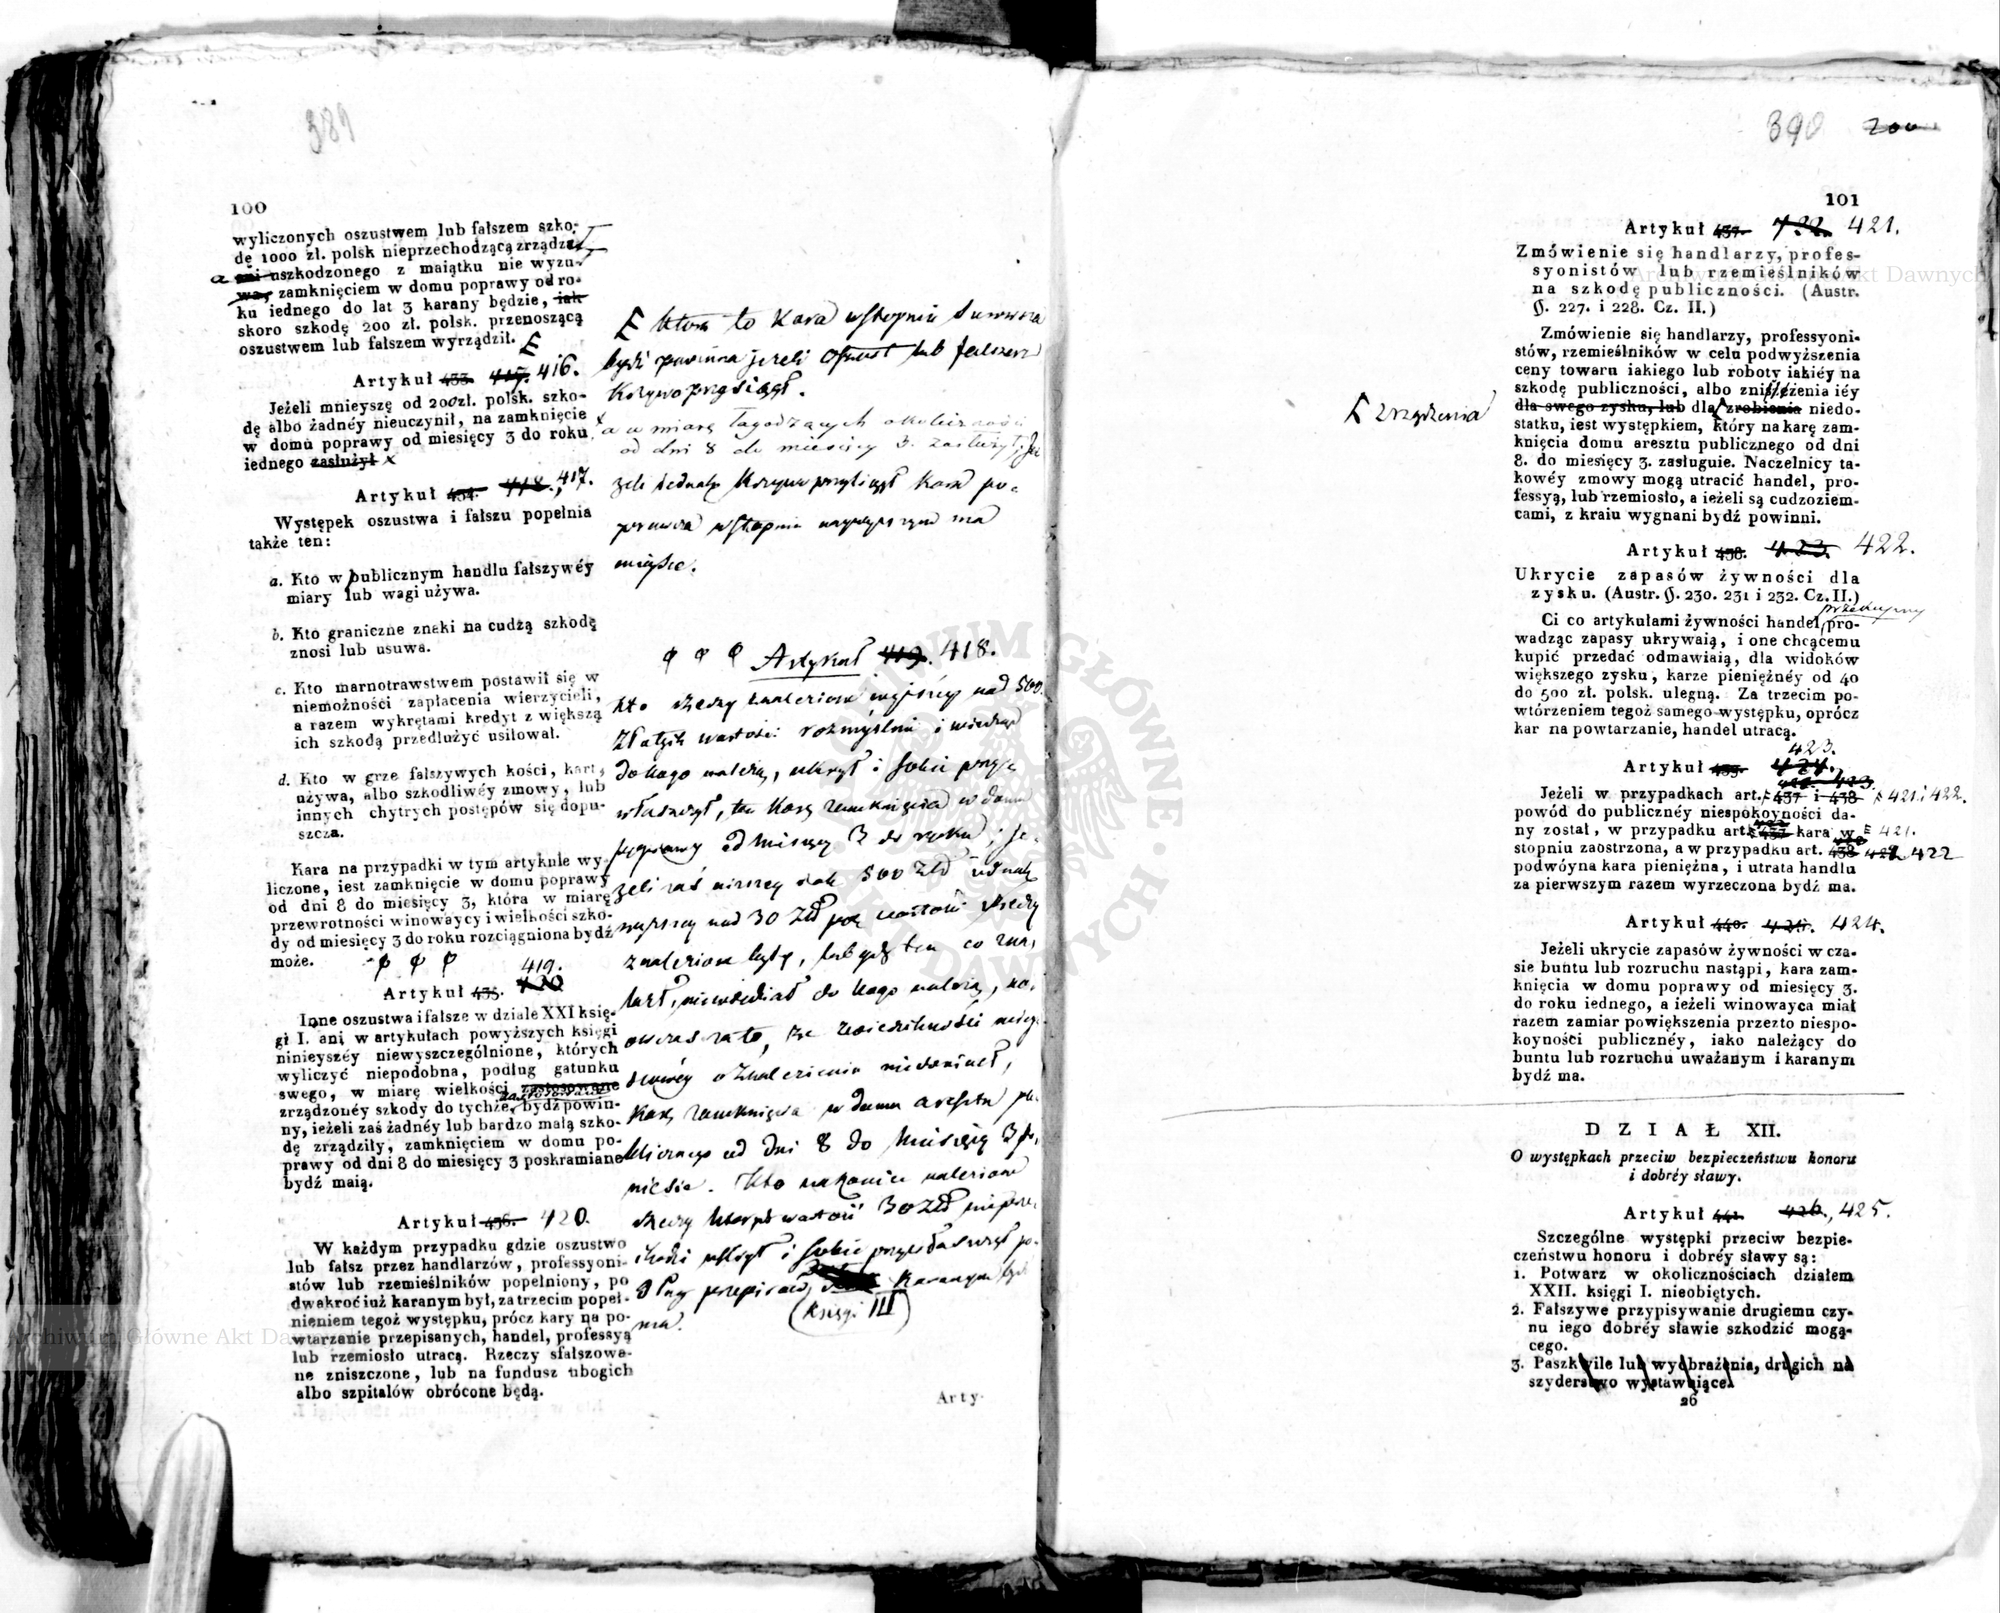 389
100
wyliczonych oszustwem lub fałszem szko-
dę 1000 zł. polsk nieprzechodzącą zrządza
a ani uszkodzonego z maiątku nie wyzu-
wa, zamknięciem w domu poprawy od ro-
ku iednego do lat 3 karany będzie, iak
skoro szkodę 200 zł. polsk. przenoszącą
oszustwem lub fałszem wyrządził.
Artykuł 433. 417. 416.
Jeżeli mnieyszę od 200 zł. polsk. szko-
dę albo żadnéy nieuczynił, na zamknięcie
w domu poprawy od miesięcy 3 do roku
iednego zasłużył x
Artykuł 434. 418. 417.
Występek oszustwa i fałszu popełnia
także ten:
a. Kto w publicznym handlu fałszywéy
miary lub wagi używa.
b. Kto graniczne znaki na cudzą szkodę
znosi lub usuwa.
c. Kto marnotrawstwem postawił się w
niemożności zapłacenia wierzycieli,
a razem wykrętami kredyt z większą
ich szkodą przedłużyć usiłował.
d. Kto w grze fałszywych kości, kart,
używa, albo szkodliwéy zmowy, lub
innych chytrych postępów się dopu-
szcza.
Kara na przypadki w tym artykule wy-
liczone, iest zamknięcie w domu poprawy
od dni 8 do miesięcy 3, która w miarę
przewrotności winowaycy i wielkości szko-
dy od miesięcy 3 do roku rozciągniona bydź
może.
419.
Artykuł 435. 420
Inne oszustwa i fałsze w dziale XXI księ-
gi I. ani w artykułach powyższych księgi
ninieyszéy niewyszczególnione, których
wyliczyć niepodobna, podług gatunku
swego, w miarę wielkości zastosowane
zastosowane
zrządzonéy szkody do tychże, bydź powin-
ny, ieżeli zaś żadnéy lub bardzo małą szko-
dę zrządziły, zamknięciem w domu po-
prawy od dni 8 do miesięcy 3 poskramiane
bydź maią.
Artykuł 436. 420.
W każdym przypadku gdzie oszustwo
lub fałsz przez handlarzów, professyoni-
stów lub rzemieślników popełniony, po
dwakroć iuż karanym był, za trzecim popeł-
nieniem tegoż występku, prócz kary na po-
wtarzanie przepisanych, handel, professyą
lub rzemiosło utracą. Rzeczy sfałszowa-
ne zniszczone, lub na fundusz ubogich
albo szpitalów obrócone będą.
która to kara w stopniu surowszym
bydź powinna jeżeli oszust lub fałszerz
Krzywoprzysiągł.
a w miarę łagodzących okoliczności
od dni 8 do miesięcy 3. zasłużył; Je
żeli iednak krzywoprzysiągł kara po-
prawcza w stopniu naywyższym ma
mieysce.
Artykuł 419. 418.
Kto rzeczy znalezione wyżéy nad 500
Złotych wartości rozmyślnie i wiedząc
do kogo należą, ukrył i sobie przy-
właszczył, ten karę zamknięcia w domu
poprawy od miesięcy 3 do roku; je-
żeli zaś niższéy iak 500 Złp iednak
wyższéy nad 30 Złp wartości rzeczy
znalezione były, lub gdy ten co zna-
lazł, niewiedział do kogo należą, na-
owczas za to, że zwierzchności mieysc-
owéy o znalezieniu niedoniosł,
karę zamknięcia w domu aresztu pu-
blicznego od dni 8 do Miesięcy 3 po-
niesie. Kto nakoniec znalezione
rzeczy których wartość 30 Złp nieprze-
chodzi ukrył i sobie przywłaszczył po-
dług przepisów karanym bydź
(Księgi III)
ma.
Arty-
390 200
101
Artykuł 437. 422. 421.
Zmówienie się handlarzy, profes-
syonistów lub rzemieślników
na szkodę publiczności. (Austr.
§. 227. i 228. Cz. II.)
Zmówienie się handlarzy, professyoni-
stów, rzemieślników w celu podwyższenia
ceny towaru iakiego lub roboty iakiéy na
szkodę publiczności, albo zniżenia iéy
dla swego zysku, lub dla zrobienia niedo-
zrządzenia
statku, iest występkiem, który na karę zam-
knięcia domu aresztu publicznego od dni
8. do miesięcy 3. zasługuie. Naczelnicy ta-
kowéy zmowy mogą utracić handel, pro-
fessyą, lub rzemiosło, a ieżeli są cudzoziem-
cami, z kraiu wygnani bydź powinni.
Artykuł 438. 423. 422.
Ukrycie zapasów żywności dla
zysku. (Austr. §. 230. 231 i 232. Cz. II.)
Ci co artykułami żywności handel pro-
wadząc zapasy ukrywaią, i one chcącemu
kupić przedać odmawiaią, dla widoków
większego zysku, karze pieniężnéy od 40
do 500 zł. polsk. ulegną. Za trzecim po-
wtórzeniem tegoż samego występku, oprócz
kar na powtarzanie, handel utracą.
423.
Artykuł 439. 424.
Jeżeli w przypadkach art. 437 i 438 421 i 422.
powód do publicznéy niespokoyności da-
ny został, w przypadku art. 437 kara w 421.
stopniu zaostrzona, a w przypadku art. 438 422
podwóyna kara pieniężna, i utrata handlu
za pierwszym razem wyrzeczona bydź ma.
Artykuł 440. 425. 424.
Jeżeli ukrycie zapasów żywności w cza-
sie buntu lub rozruchu nastąpi, kara zam-
knięcia w domu poprawy od miesięcy 3.
do roku iednego, a ieżeli winowayca miał
razem zamiar powiększenia przezto niespo-
koyności publicznéy, iako należący do
buntu lub rozruchu uważanym i karanym
bydź ma.
DZIAŁ XII.
O występkach przeciw bezpieczeństwu honoru
i dobréy sławy.
Artykuł 441. 426., 425.
Szczególne występki przeciw bezpie-
czeństwu honoru i dobréy sławy są:
1. Potwarz w okolicznościach działem
XXII. księgi I. nieobiętych.
2. Fałszywe przypisywanie drugiemu czy-
nu iego dobréy sławie szkodzić mogą-
cego.
3. Paszkwile lub wyobrażenia, drugich na
szyderstwo wystawuiące.
26
ARCHIWUM GŁÓWNE AKT DAWNYCH
Archiwum Główne Akt Dawnych